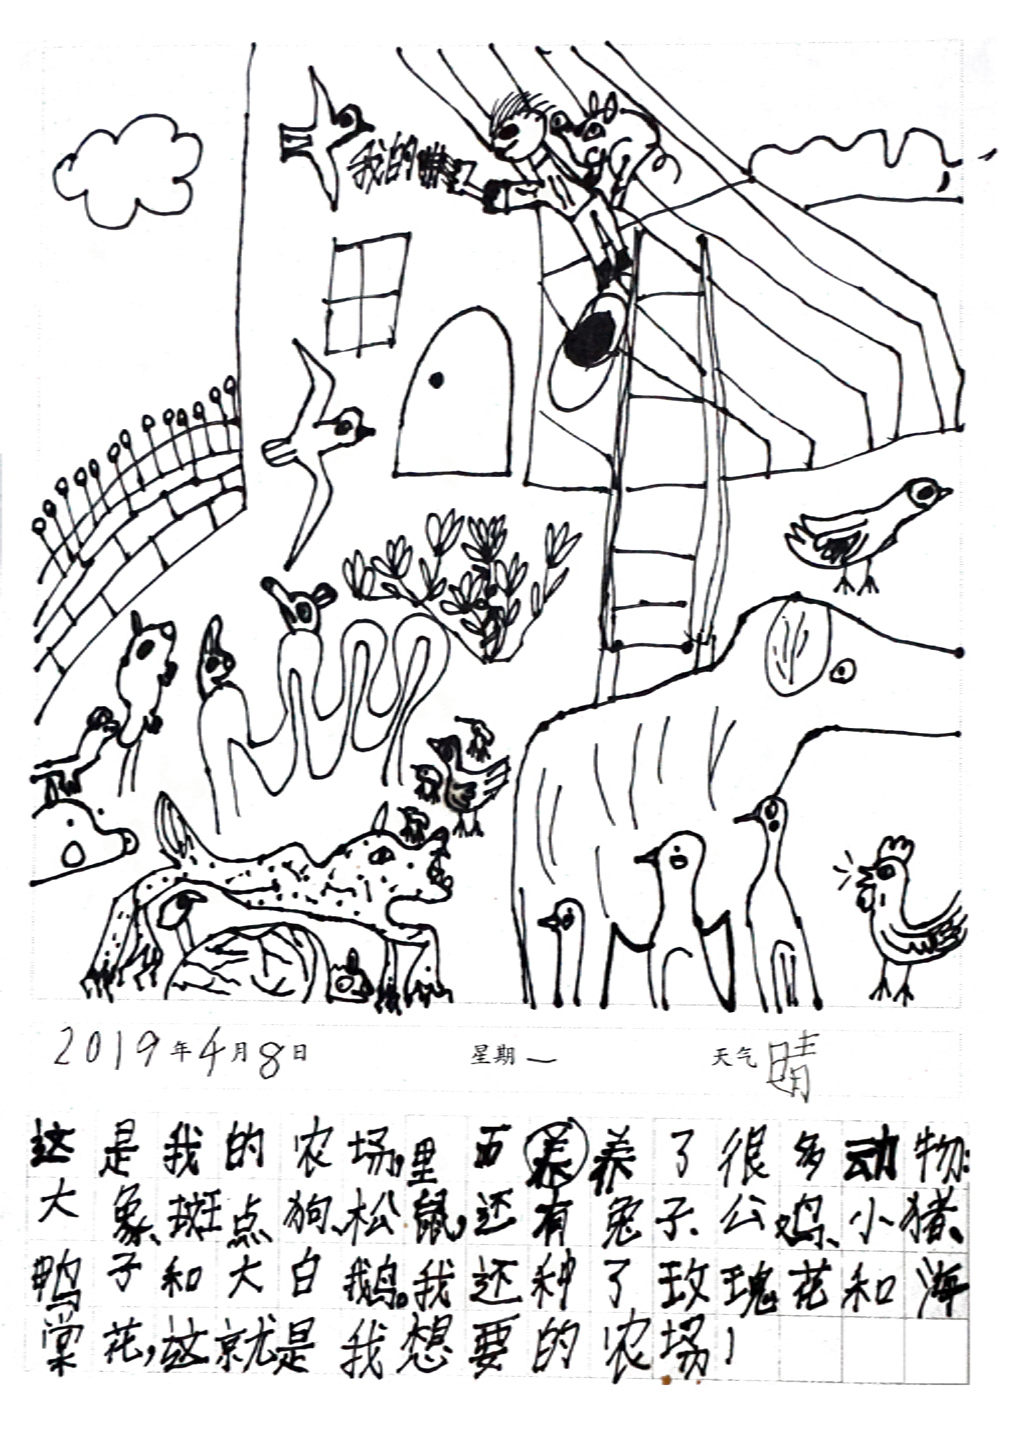 我的
2019年4月8日 星期一 天气晴
这是我的农场,里面养养了很多动物:
大象、斑点狗、松鼠,还有兔子、公鸡、小猪、
鸭子和大白鹅。我还种了玫瑰花和海
棠花,这就是我想要的农场!